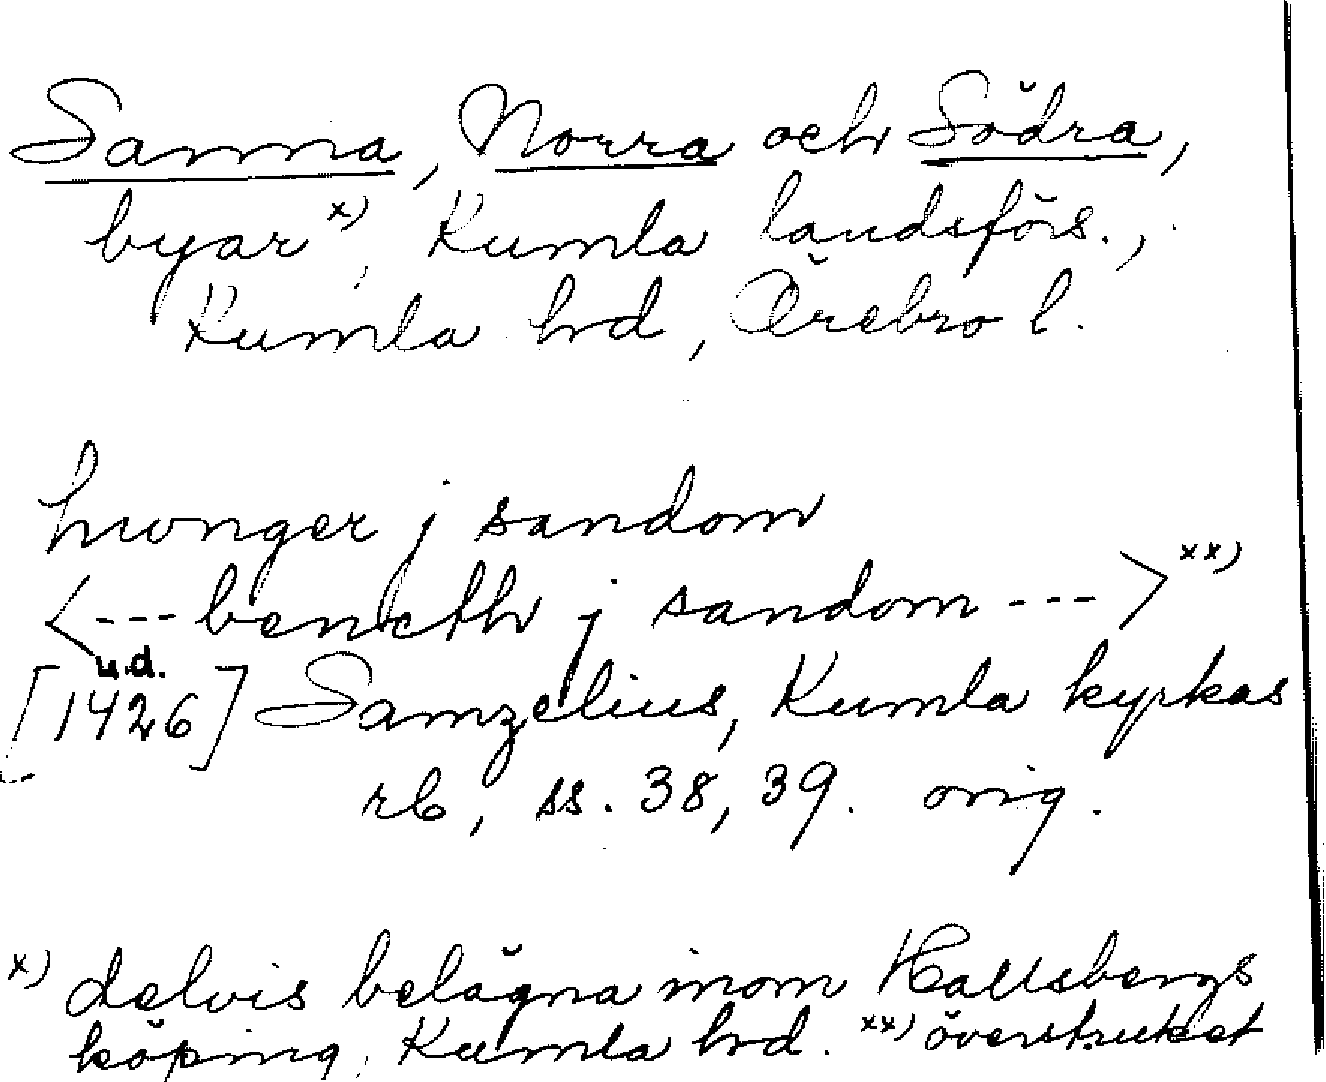 Sanna, Norra och Södra,
byar x), Kumla landsförs.,
Kumla hd, Örebro l.
hwnger j sandom
<--- benkth j sandom ---> xx)
u.d.
[1426] Samzelius, Kumla kyrkas
rb, ss. 38, 39. orig.
x) delvis belägna inom Hallsbergs
köping, Kumla hd. xx) överstruket